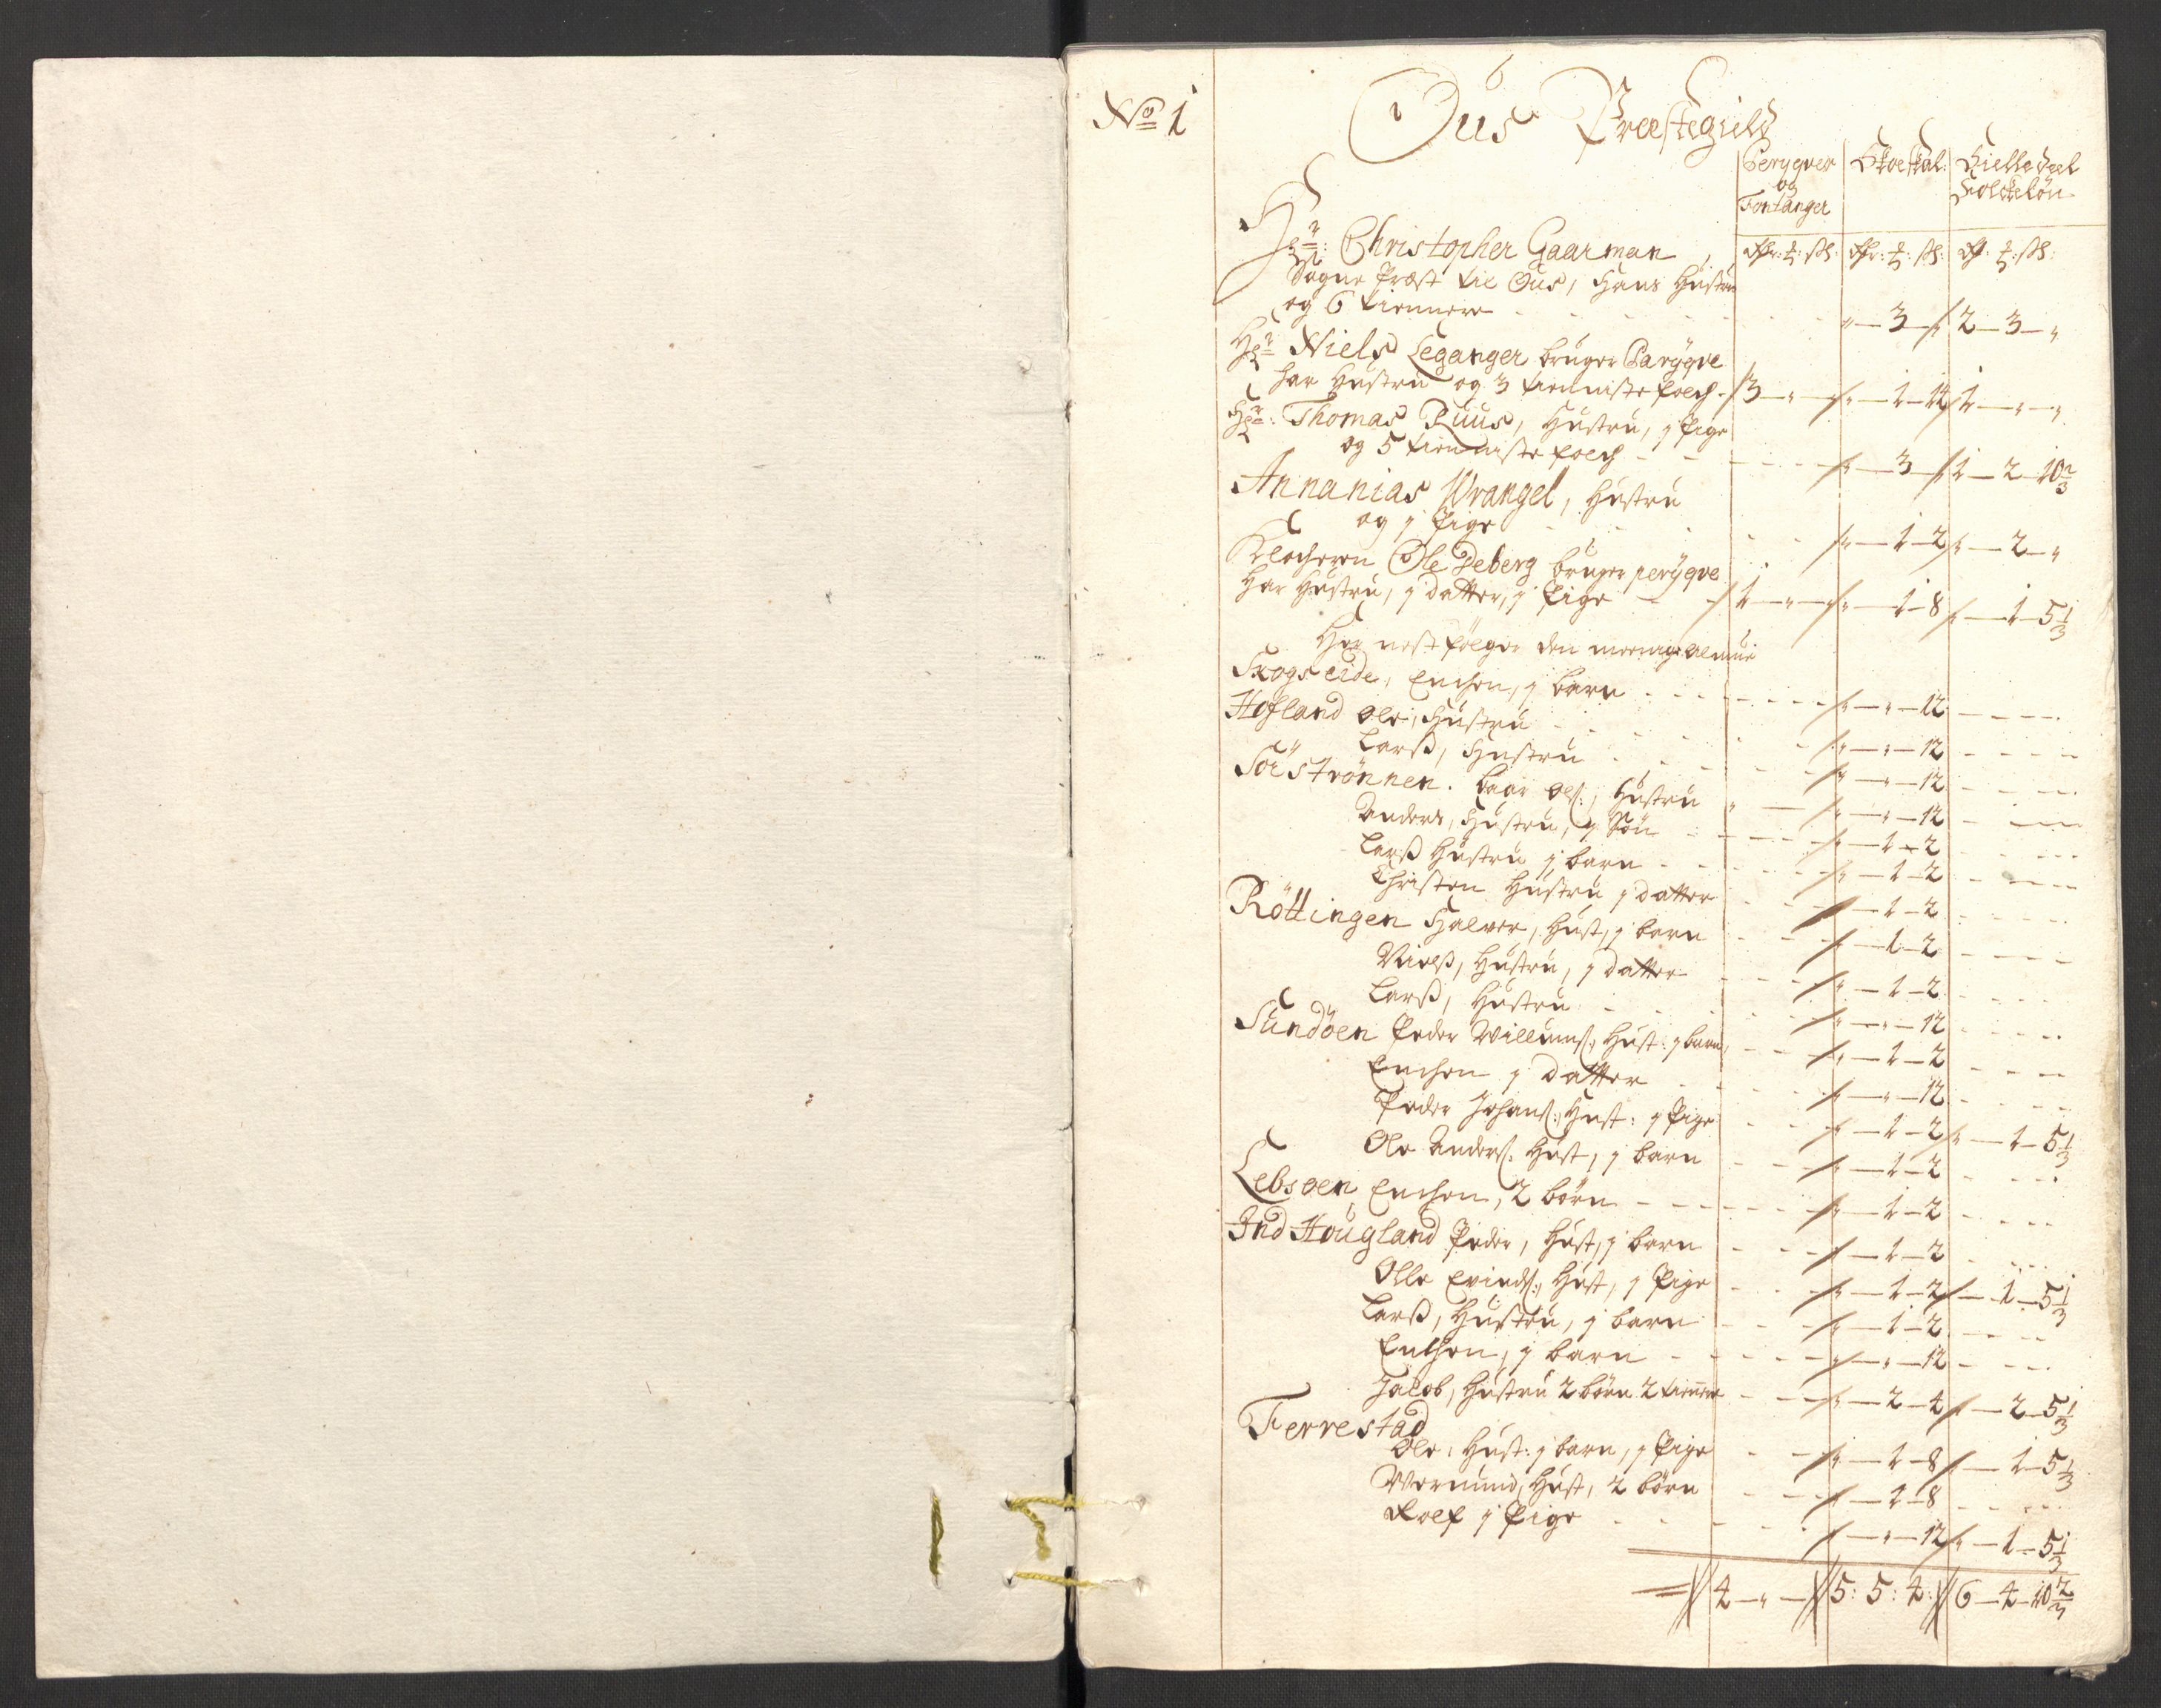 No 1
Ous Præstegield
Perryqver og Fontanger | Skoeskat | Kielle deel Folckeløn
Rdr: ₰: sk: | Rdr: ₰: sk: | Rd: ₰: sk:
Hr: Christopher Gaarman
Sogne Præst til Ous, Hans Hustru
og 6 tiennere - - - " - 3 - " | 2 - 3 - "
Hr Niels Leganger bruger Parÿqve
har Hustru og 3 tienniste folch - 3 - " - " | " - 1 - 14 | 1 - " - "
Hr: Thomas Ruus, Hustru, 1 Pige
og 5 tienniste folch - - - " - 3 - " | 1 - 2 - 10 2/3
Annanias Wrangel, Hustru
og 1 Pige - - - " - 1 - 2 | " - 2 - "
Klocheren Ole Deberg bruger perÿqve
har Hustru, 1 datter, 1 Pige - 1 - " - " | " - 1 - 8 | " - 1 - 5 1/3
Her nest følger den meenige almue
Skogseide, Enchen, 1 barn - - - " - " - 12
Hofland Ole, Hustru - - - " - " - 12
Larß, Hustru - - - " - " - 12
Söeströnnen. Baar Ols:, Hustru - " - " - 12
Anders, Hustru, 1 Søn - - " - 1 - 2
Larß Hustru 1 barn - - " - 1 - 2
Christen Hustru 1 datter - - " - 1 - 2
Röttingen Halver, Hust, 1 barn - - " - 1 - 2
Nielß, Hustru, 1 datter - - " - 1 - 2
Larß, Hustru - - " - " - 12
Sundöen Peder Willums:, Hust: 1 barn, - - " - 1 - 2
Enchen 1 datter - - " - " - 12
Peder Johans:, Hust: 1 Pige - - " - 1 - 2 | " - 1 - 5 1/3
Ole Anders: Hust, 1 barn - - " - 1 - 2
Lebsøen, Enchen, 2 börn - - " - 1 - 2
Ind Hougland Peder, Hust, 1 barn - - " - 1 - 2
Olle Evinds:, Hust, 1 Pige - - " - 1 - 2 | " - 1 - 5 1/3
Larß, Hustru, 1 barn - - " - 1 - 2
Enchen, 1 barn - - " - " - 12
Jacob, Hustru 2 börn 2 tiennere - - " - 2 - 4 | " - 2 - 5 1/3
Ferrestad
Ole, Hust: 1 barn, 1 Pige - - " - 1 - 8 | " - 1 - 5 1/3
Wermund, Hust, 2 börn - - " - 1 - 8
Rolf 1 Pige - - " - " - 12 | " - 1 - 5 1/3
4 - " - | 5: 5: 4: | 6 - 4 - 10 2/3